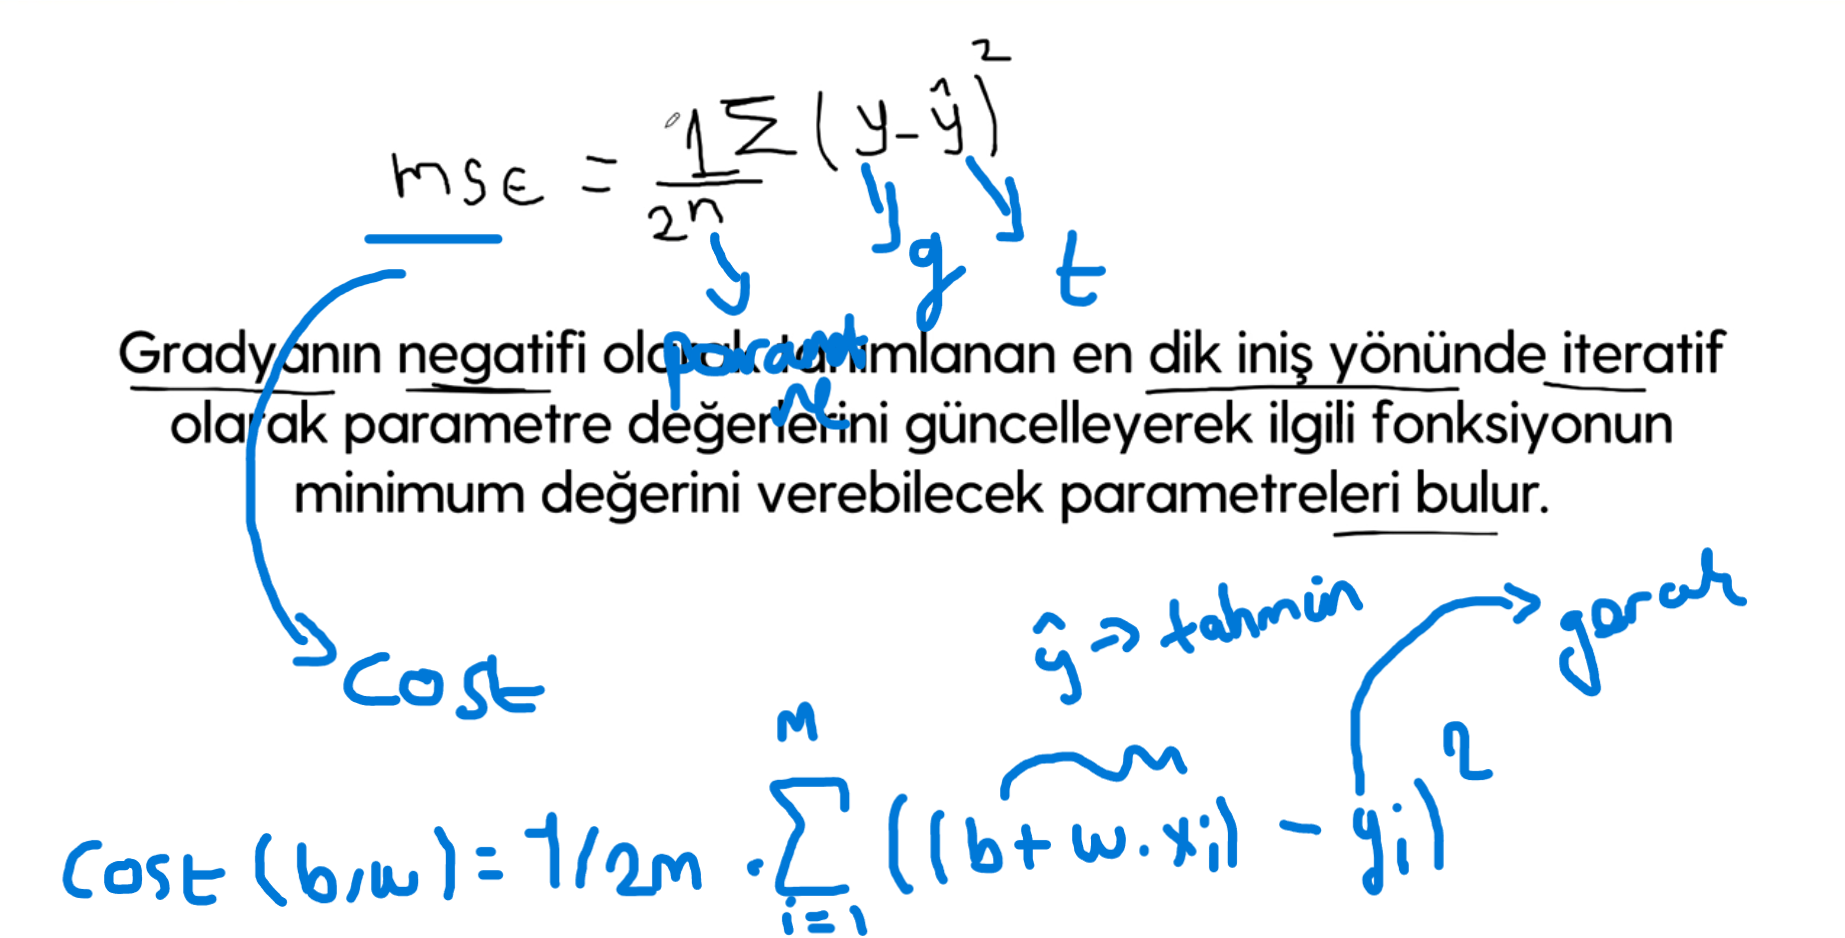 mSE = 1/2n Σ (y - ŷ)²
g t
Gradyanın negatifi olarak tanımlanan en dik iniş yönünde iteratif
olarak parametre değerlerini güncelleyerek ilgili fonksiyonun
minimum değerini verebilecek parametreleri bulur.
ŷ → tahmin
Cost
Cost (b,w) = 1/2m . Σ i=1 m ((b + w. xi) - yi)²